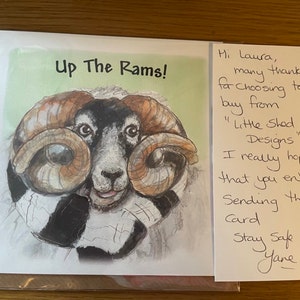 Up The Rams!
Hi Laura,
many thank
for choosing t
buy from
"Little Shed
Designs
I really ho
that you en
Sending th
Card
Stay Safe
Jane